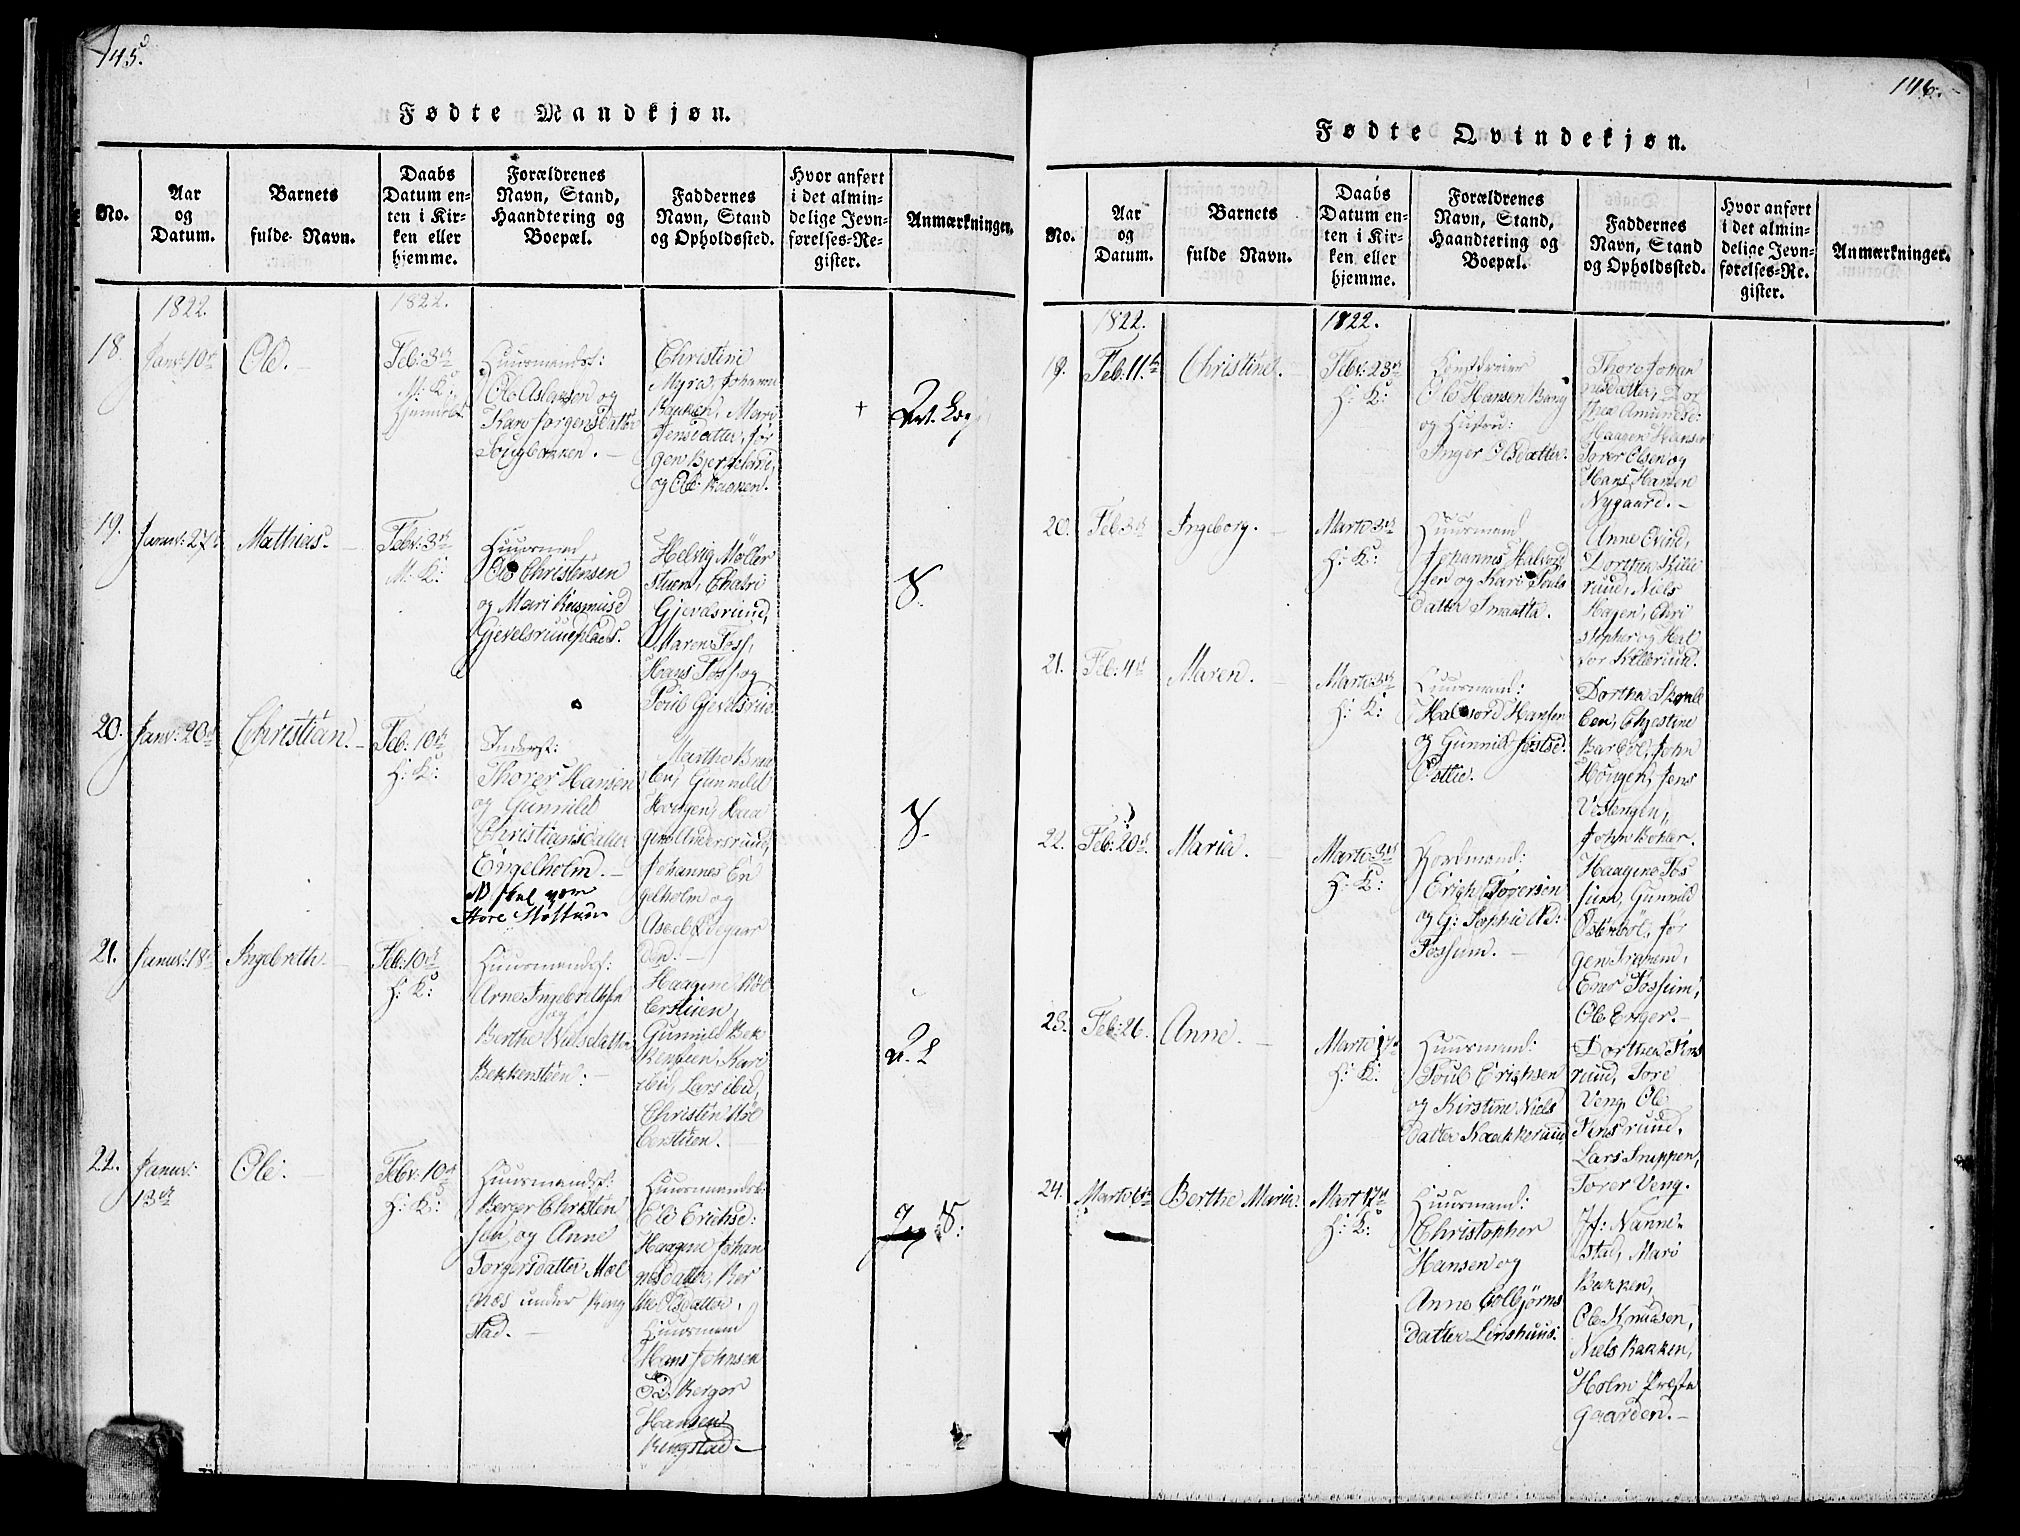 145.
Fødte Mandkjøn.
No.
Aar
og
Datum.
Barnets
fulde Navn.
Daabs
Datum en-
ten i Kir-
ken eller
hjemme.
Forældrenes
Navn, Stand,
Haandtering og
Boepæl.
Faddernes
Navn, Stand
og Opholdssted.
Hvor anført
i det almin-
delige Jevn-
førelses-Re-
gister.
Anmærkninger.
1822.
1822.
18.
Janv: 10de
Ole.
Feb: 3de
M: K:
Huusmandsf:
Ole Aslaksen og
Kari Jørgensdatter
Christine
Myra, Johanne
Bakken, Mari
Jensdatter, Jør
gen Bjerkelund,
og Ole Bakken.
+
19.
Janv: 27de
Mathias.
Febr: 3de
M: K:
Huusmand
Ole Christensen
og Mari Rasmusd
Gjevelsruudplads.
Helvig Møller
stuen,
Gjevelsruud,
Maren Foss,
Hans Foss og
Poul Gjevelsrud.
S.
20.
Janv: 20de
Christian.
Feb: 10de
H: K:
Inderst:
Thorer Hansen
og Gunnild
Christiansdatter
Engelholm.
NB skal være
Store
Marthe Bra
ten, Gunnild
Hougen, Haa
gen Andersruud,
Johannes En
gelholm og
Axel Ødegaar
den.
S.
21.
Janv: 18de
Ingebreth.
Feb: 10de
H: K:
Huusmandsf:
Arne Ingebrethsen
og
Berthe Nielsdatter
Bekkenstëen:
Haagine Høl
Gunnild Bek
Kensteen, Kari
ibid, Lars ibid,
Christen Høl
22.
Janv:
13de
Ole.
Febr: 10de
H: K:
Huusmandsf:
Berger Christen
sen, og Anne
Torgersdatter Mæl
næs under Ring
stad.
Huusmandsk:
Eli Erichsd:
Haagine Johan
nesdatter, Ber
the Olsdatter,
Huusmand
Hans Johnsen
Berger
Hansen
Ringstad.
S.
146.
Fødte Qvindekjøn.
No.
Aar
og
Datum.
Barnets
fulde Navn.
Daabs
Datum en-
ten i Kir-
ken eller
hjemme.
Forældrenes
Navn, Stand,
Haandtering og
Boepæl.
Faddernes
Navn, Stand
og Opholdssted.
Hvor anført
i det almin-
delige Jevn-
førelses-Re-
gister.
Anmærkninger.
1822.
1822.
19.
Feb: 11te
Christine.
Febr: 23de
H: K:
Ole Hansen Berg
og Hustru:
Inger Olsdatter.
Thore Johan
nesdatter, Dor
thea Amundsd:
Haagen Hansen
Torer Olsen og
Hans Hansen
Nygaard.
20.
Feb: 3de
Ingeborg.
Marts 3de
H: K:
Huusmand
Johannes Halvord
sen og Kari Pouls
datter Smætta.
Anne Evie,
Dorthea Kille
ruud, Niels
Hagen, Chri
stopher og Hal
vor Killeruud.
21.
Feb: 4de
Maren.
Marts 3de
H: K:
Huusmand:
Halvord Hansen
og Gunnild Jostsd.
Dorthea
Chrestine
Barbøl, John
Hougen, Jens
Vestengen,
John Bøhler.
22.
Feb: 20de
Maria.
Marts 3de
H: K:
Gordmand:
Erich Torersen
og G: Sophie Nd:
Fossum.
Haagine Fos
sum, Gunnild
Østenbøl, Jør
gen
Ener Fossum,
Ole Enger.
23.
Feb: 26.
Anne.
Marts 17de
H: K:
Huusmand:
Poul Erichsen
og Kirstine Niels
datter
Dorthea Fins
ruud, Tore
Veng, Ole
Finsruud,
Lars Truppen,
Torer Veng.
24.
Marts 6te
Berthe Maria.
Mart 17de
H: K:
Huusmand:
Christopher
Hansen og
Anne Colbjørns
datter Linshuus.
Jf: Nanne-
stad, Mari
Bakken,
Ole Knudsen,
Niels Bakken,
Holm Præste
gaarden.